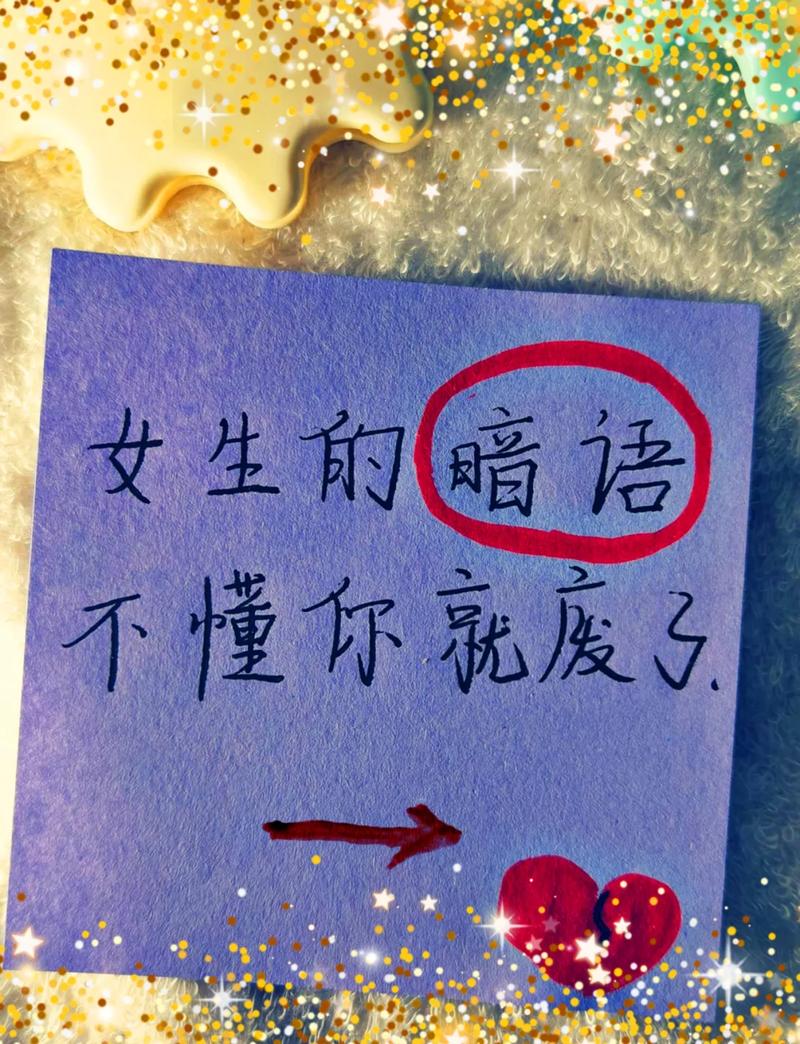 女生的暗语
不懂你就废了.